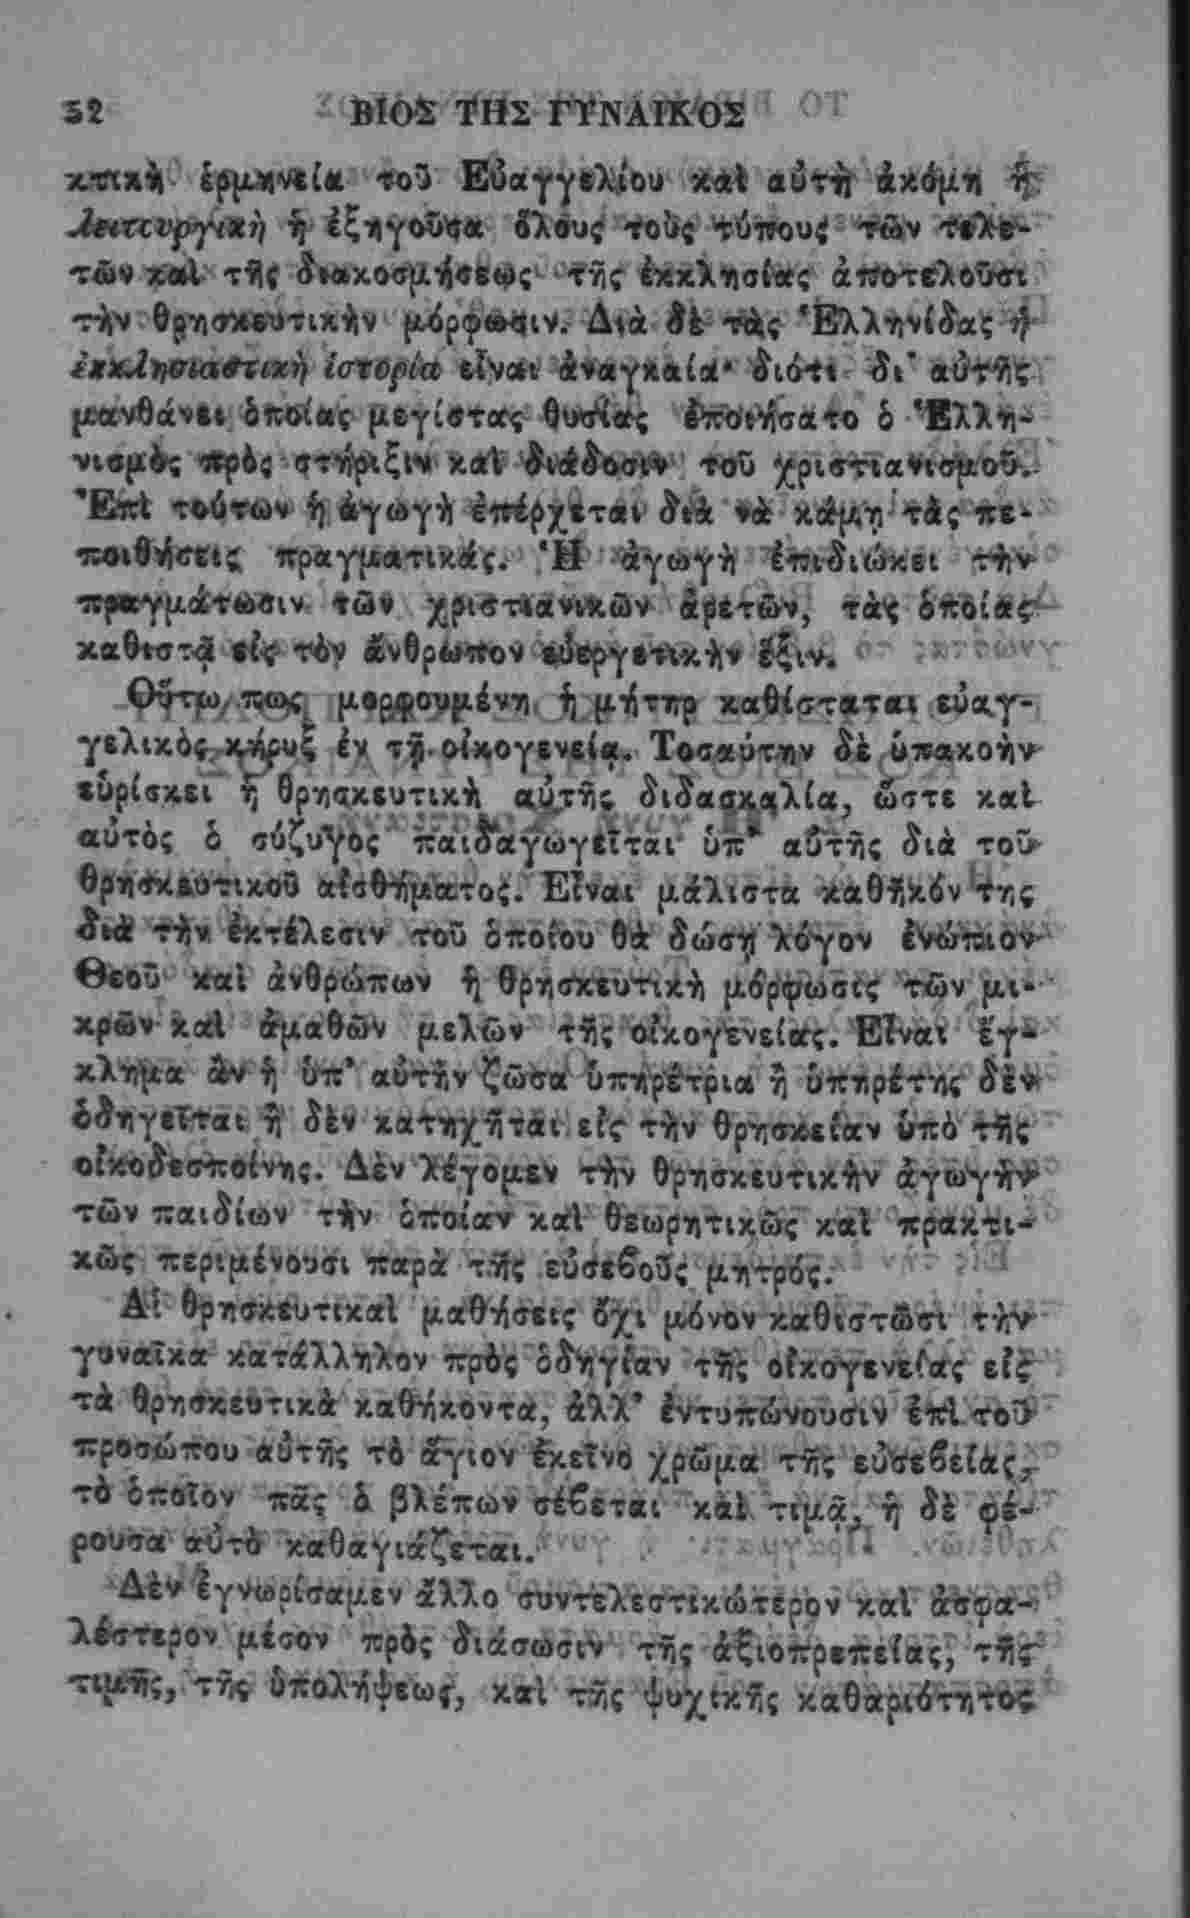 52 ΒΙΟΣ ΤΗΣ ΓΥΝΑΙΚΟΣ
κτικὴ ἑρμηνεία τοῦ Εὐαγγελίου καὶ αὐτὴ ἀκόμη ἡ
λειτουργικὴ ἡ ἐξηγοῦσα ὅλους τοὺς τύπους τῶν τελε-
τῶν καὶ τῆς διακοσμήσεως τῆς ἐκκλησίας ἀποτελοῦσι
τὴν θρησκευτικὴν μόρφωσιν. Διὰ δὲ τὰς Ἑλληνίδας ἡ
ἐκκλησιαστικὴ ἱστορία εἶναι ἀναγκαία· διότι δι' αὐτῆς
μανθάνει ὁποίας μεγίστας θυσίας ἐποιήσατο ὁ Ἑλλη-
νισμὸς πρὸς στήριξιν καὶ διάδοσιν τοῦ χριστιανισμοῦ.
Ἐπὶ τούτων ἡ ἀγωγὴ ἐπέρχεται διὰ νὰ κάμῃ τὰς πε-
ποιθήσεις πραγματικάς. Ἡ ἀγωγὴ ἐπιδιώκει τὴν
πραγμάτωσιν τῶν χριστιανικῶν ἀρετῶν, τὰς ὁποίας
καθιστᾷ εἰς τὸν ἄνθρωπον εὐεργετικὴν ἕξιν.
Οὕτω πως μορφουμένη ἡ μήτηρ καθίσταται εὐαγ-
γελικὸς κήρυξ ἐν τῇ οἰκογενείᾳ. Τοσαύτην δὲ ὑπακοὴν
εὑρίσκει ἡ θρησκευτικὴ αὐτῆς διδασκαλία, ὥστε καὶ
αὐτὸς ὁ σύζυγος παιδαγωγεῖται ὑπ' αὐτῆς διὰ τοῦ
θρησκευτικοῦ αἰσθήματος. Εἶναι μάλιστα καθῆκόν της
διὰ τὴν ἐκτέλεσιν τοῦ ὁποίου θὰ δώσῃ λόγον ἐνώπιον
Θεοῦ καὶ ἀνθρώπων ἡ θρησκευτικὴ μόρφωσις τῶν μι-
κρῶν καὶ ἀμαθῶν μελῶν τῆς οἰκογενείας. Εἶναι ἔγ-
κλημα ἂν ἡ ὑπ' αὐτὴν ζῶσα ὑπηρέτρια ἢ ὑπηρέτης δὲν
ὁδηγεῖται ἢ δὲν κατηχῆται εἰς τὴν θρησκείαν ὑπὸ τῆς
οἰκοδεσποίνης. Δὲν λέγομεν τὴν θρησκευτικὴν ἀγωγὴν
τῶν παιδίων τὴν ὁποίαν καὶ θεωρητικῶς καὶ πρακτι-
κῶς περιμένουσι παρὰ τῆς εὐσεβοῦς μητρός.
Αἱ θρησκευτικαὶ μαθήσεις ὄχι μόνον καθιστῶσι τὴν
γυναῖκα κατάλληλον πρὸς ὁδηγίαν τῆς οἰκογενείας εἰς
τὰ θρησκευτικὰ καθήκοντα, ἀλλ' ἐντυπώνουσιν ἐπὶ τοῦ
προσώπου αὐτῆς τὸ ἅγιον ἐκεῖνο χρῶμα τῆς εὐσεβείας,
τὸ ὁποῖον πᾶς ὁ βλέπων σέβεται καὶ τιμᾷ, ἡ δὲ φέ-
ρουσα αὐτὸ καθαγιάζεται.
Δὲν ἐγνωρίσαμεν ἄλλο συντελεστικώτερον καὶ ἀσφα-
λέστερον μέσον πρὸς διάσωσιν τῆς ἀξιοπρεπείας, τῆς
τιμῆς, τῆς ὑπολήψεως, καὶ τῆς ψυχικῆς καθαριότητος